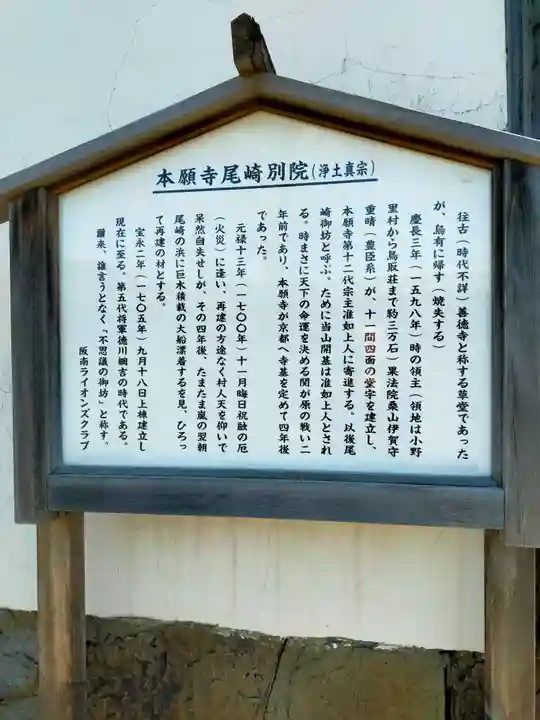 本願寺尾崎別院(浄土真宗)
往古(時代不詳)善徳寺と称する草堂であった
が、烏有に帰す(焼失する)
慶長三年(一五九八年)時の領主(領地は小野
里村から鳥取荘まで約三万石)果法院桑山伊賀守
重晴(豊臣系)が、十一間四面の堂宇を建立し、
本願寺第十二代宗主准如上人に寄進する。以後尾
崎御坊と呼ぶ。ために当山開基は准如上人とされ
る。時まさに天下の命運を決める関が原の戦い二
年前であり、本願寺が京都へ寺基を定めて四年後
であった。
元禄十三年(一七〇〇年)十一月晦日祝融の厄
(火災)に逢い、再建の方途なく村人天を仰いで
呆然自失せしが、その四年後、たまたま嵐の翌朝
尾崎の浜に巨木積載の大船漂着するを見、ひろっ
て再建の材とする。
宝永二年(一七〇五年)九月十八日上棟建立し
現在に至る。第五代将軍徳川綱吉の時代である。
爾来、誰言うとなく「不思議の御坊」と称す。
阪南ライオンズクラブ